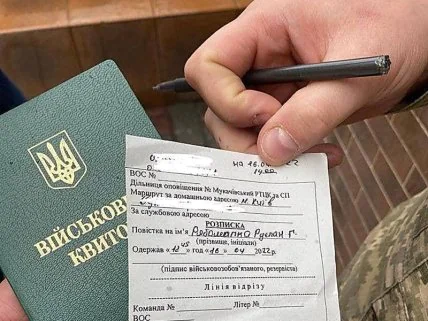 ВІЙСЬКОВИЙ
КВИТОК
на 16.04.22
14.00
ВОС №
Дільниця оповіщення № Мукачівський РТЦК та СП
Маршрут за домашньою адресою м. Київ
За службовою адресою
РОЗПИСКА
Повістка на ім'я Руслан Г.
(прізвище, ініціали)
Одержав « год « 04 2022р.
(підпис військовозобов'язаного, резервіста)
Лінія відрізу
Команда № Літер №
ВОС